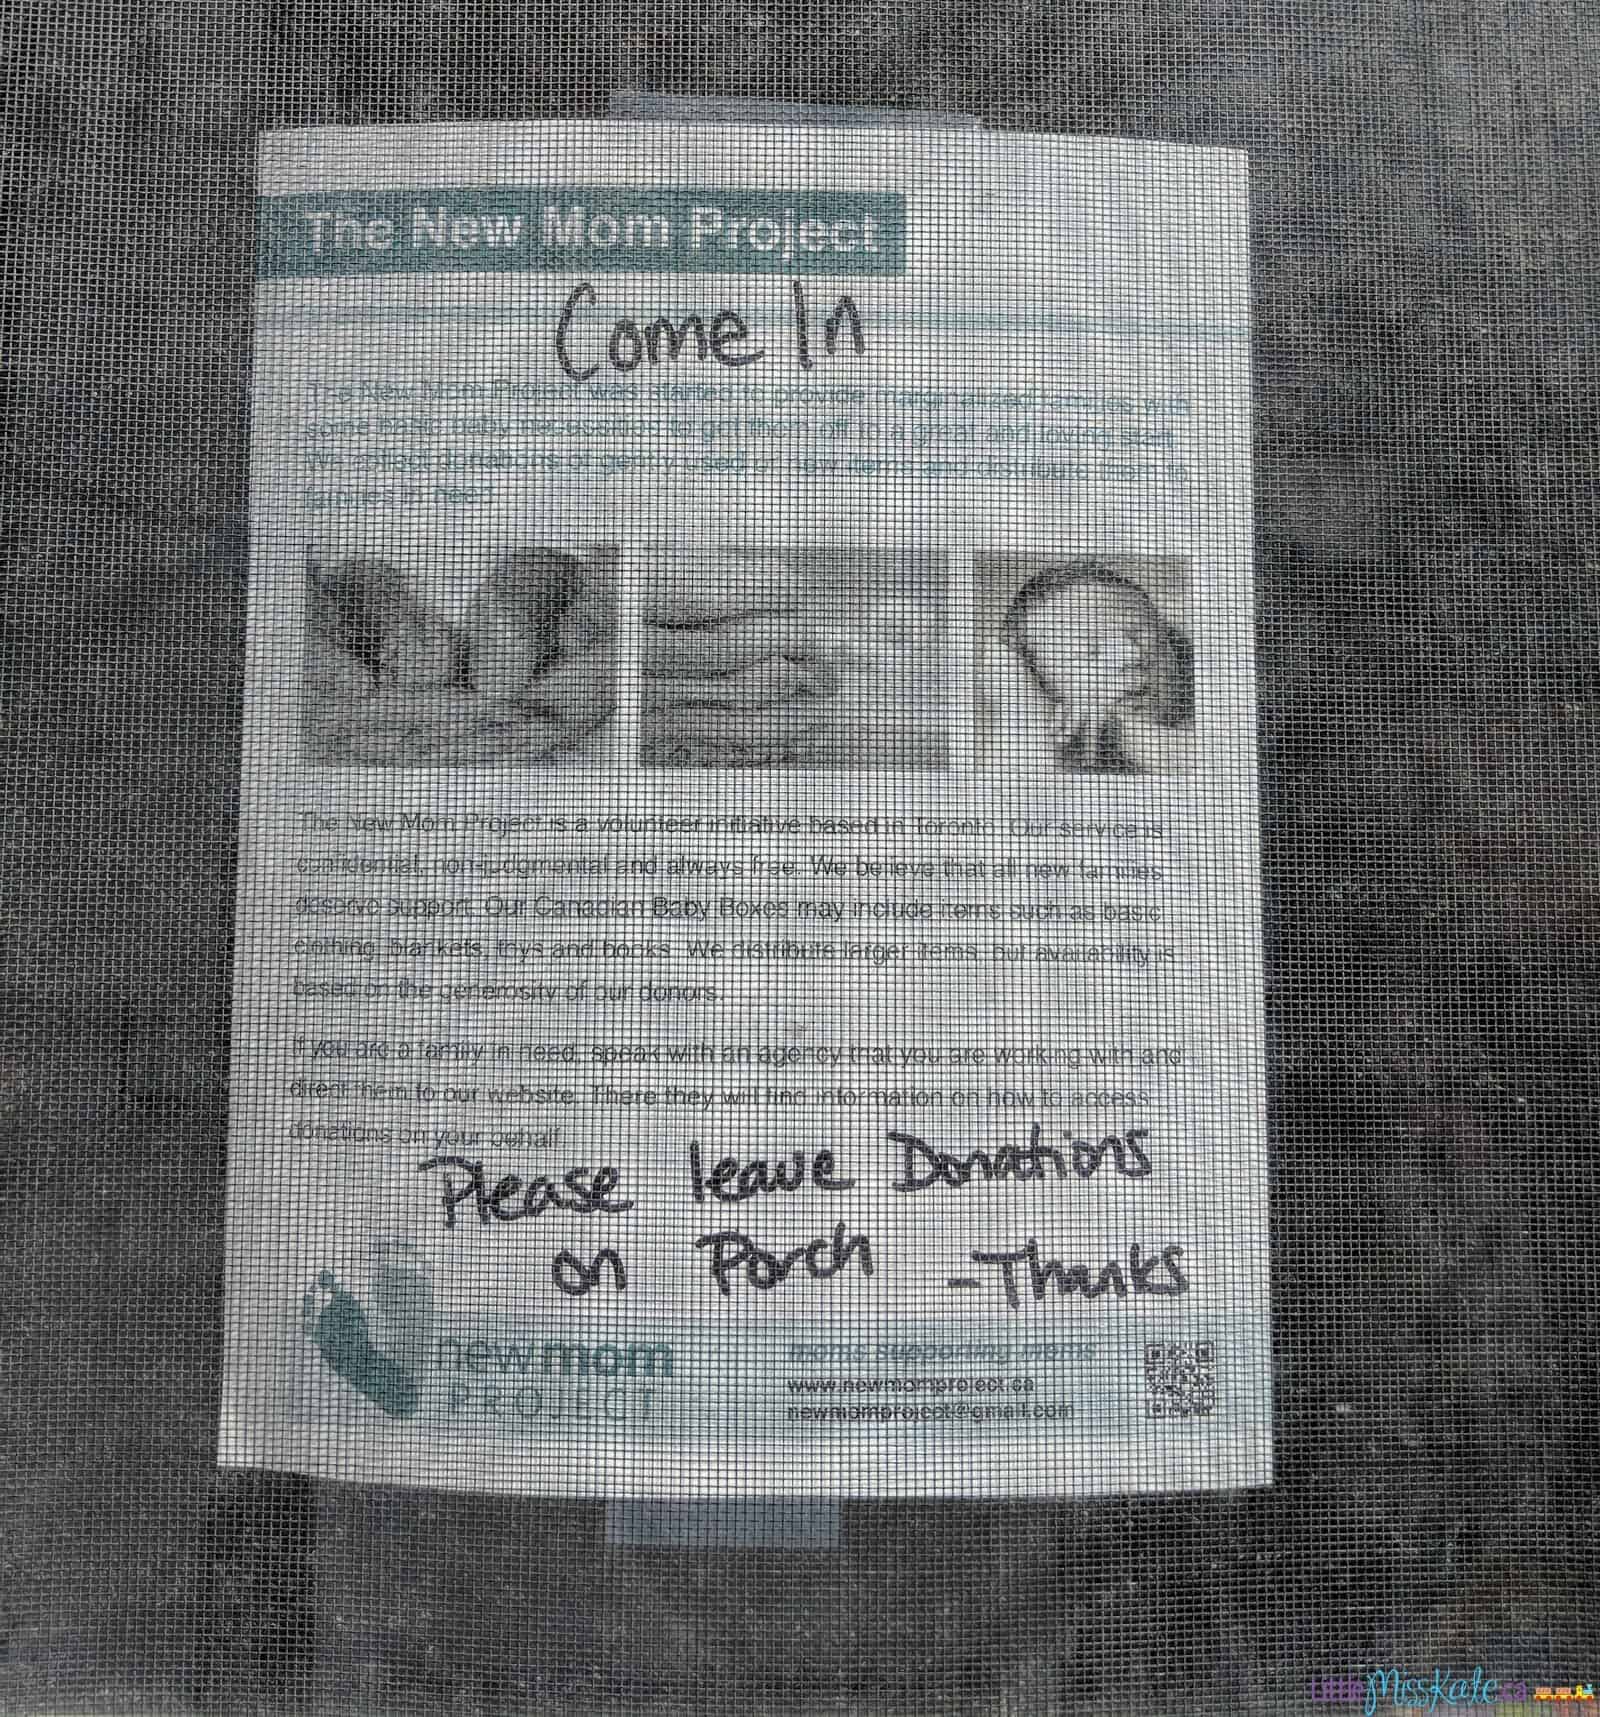 The New Mom Project
Come In
The New Mom Project was started to provide marginalized families with
some basic baby necessities to get them off to a great and loving start.
We collect donations of gently used or new items and distribute them to
families in need.
The New Mom Project is a volunteer initiative based in Toronto. Our service is
confidential, non-judgmental and always free. We believe that all new families
deserve support. Our Canadian Baby Boxes may include items such as basic
clothing, blankets, toys and books. We distribute larger items, but availability is
based on the generosity of our donors.
If you are a family in need, speak with an agency that you are working with and
direct them to our website. There they will find information on how to access
donations on your behalf.
Please leave Donations
on Porch - Thanks
newmom
PROJECT
moms supporting moms
www.newmomproject.ca
newmomproject@gmail.com
LittleMissKate.ca